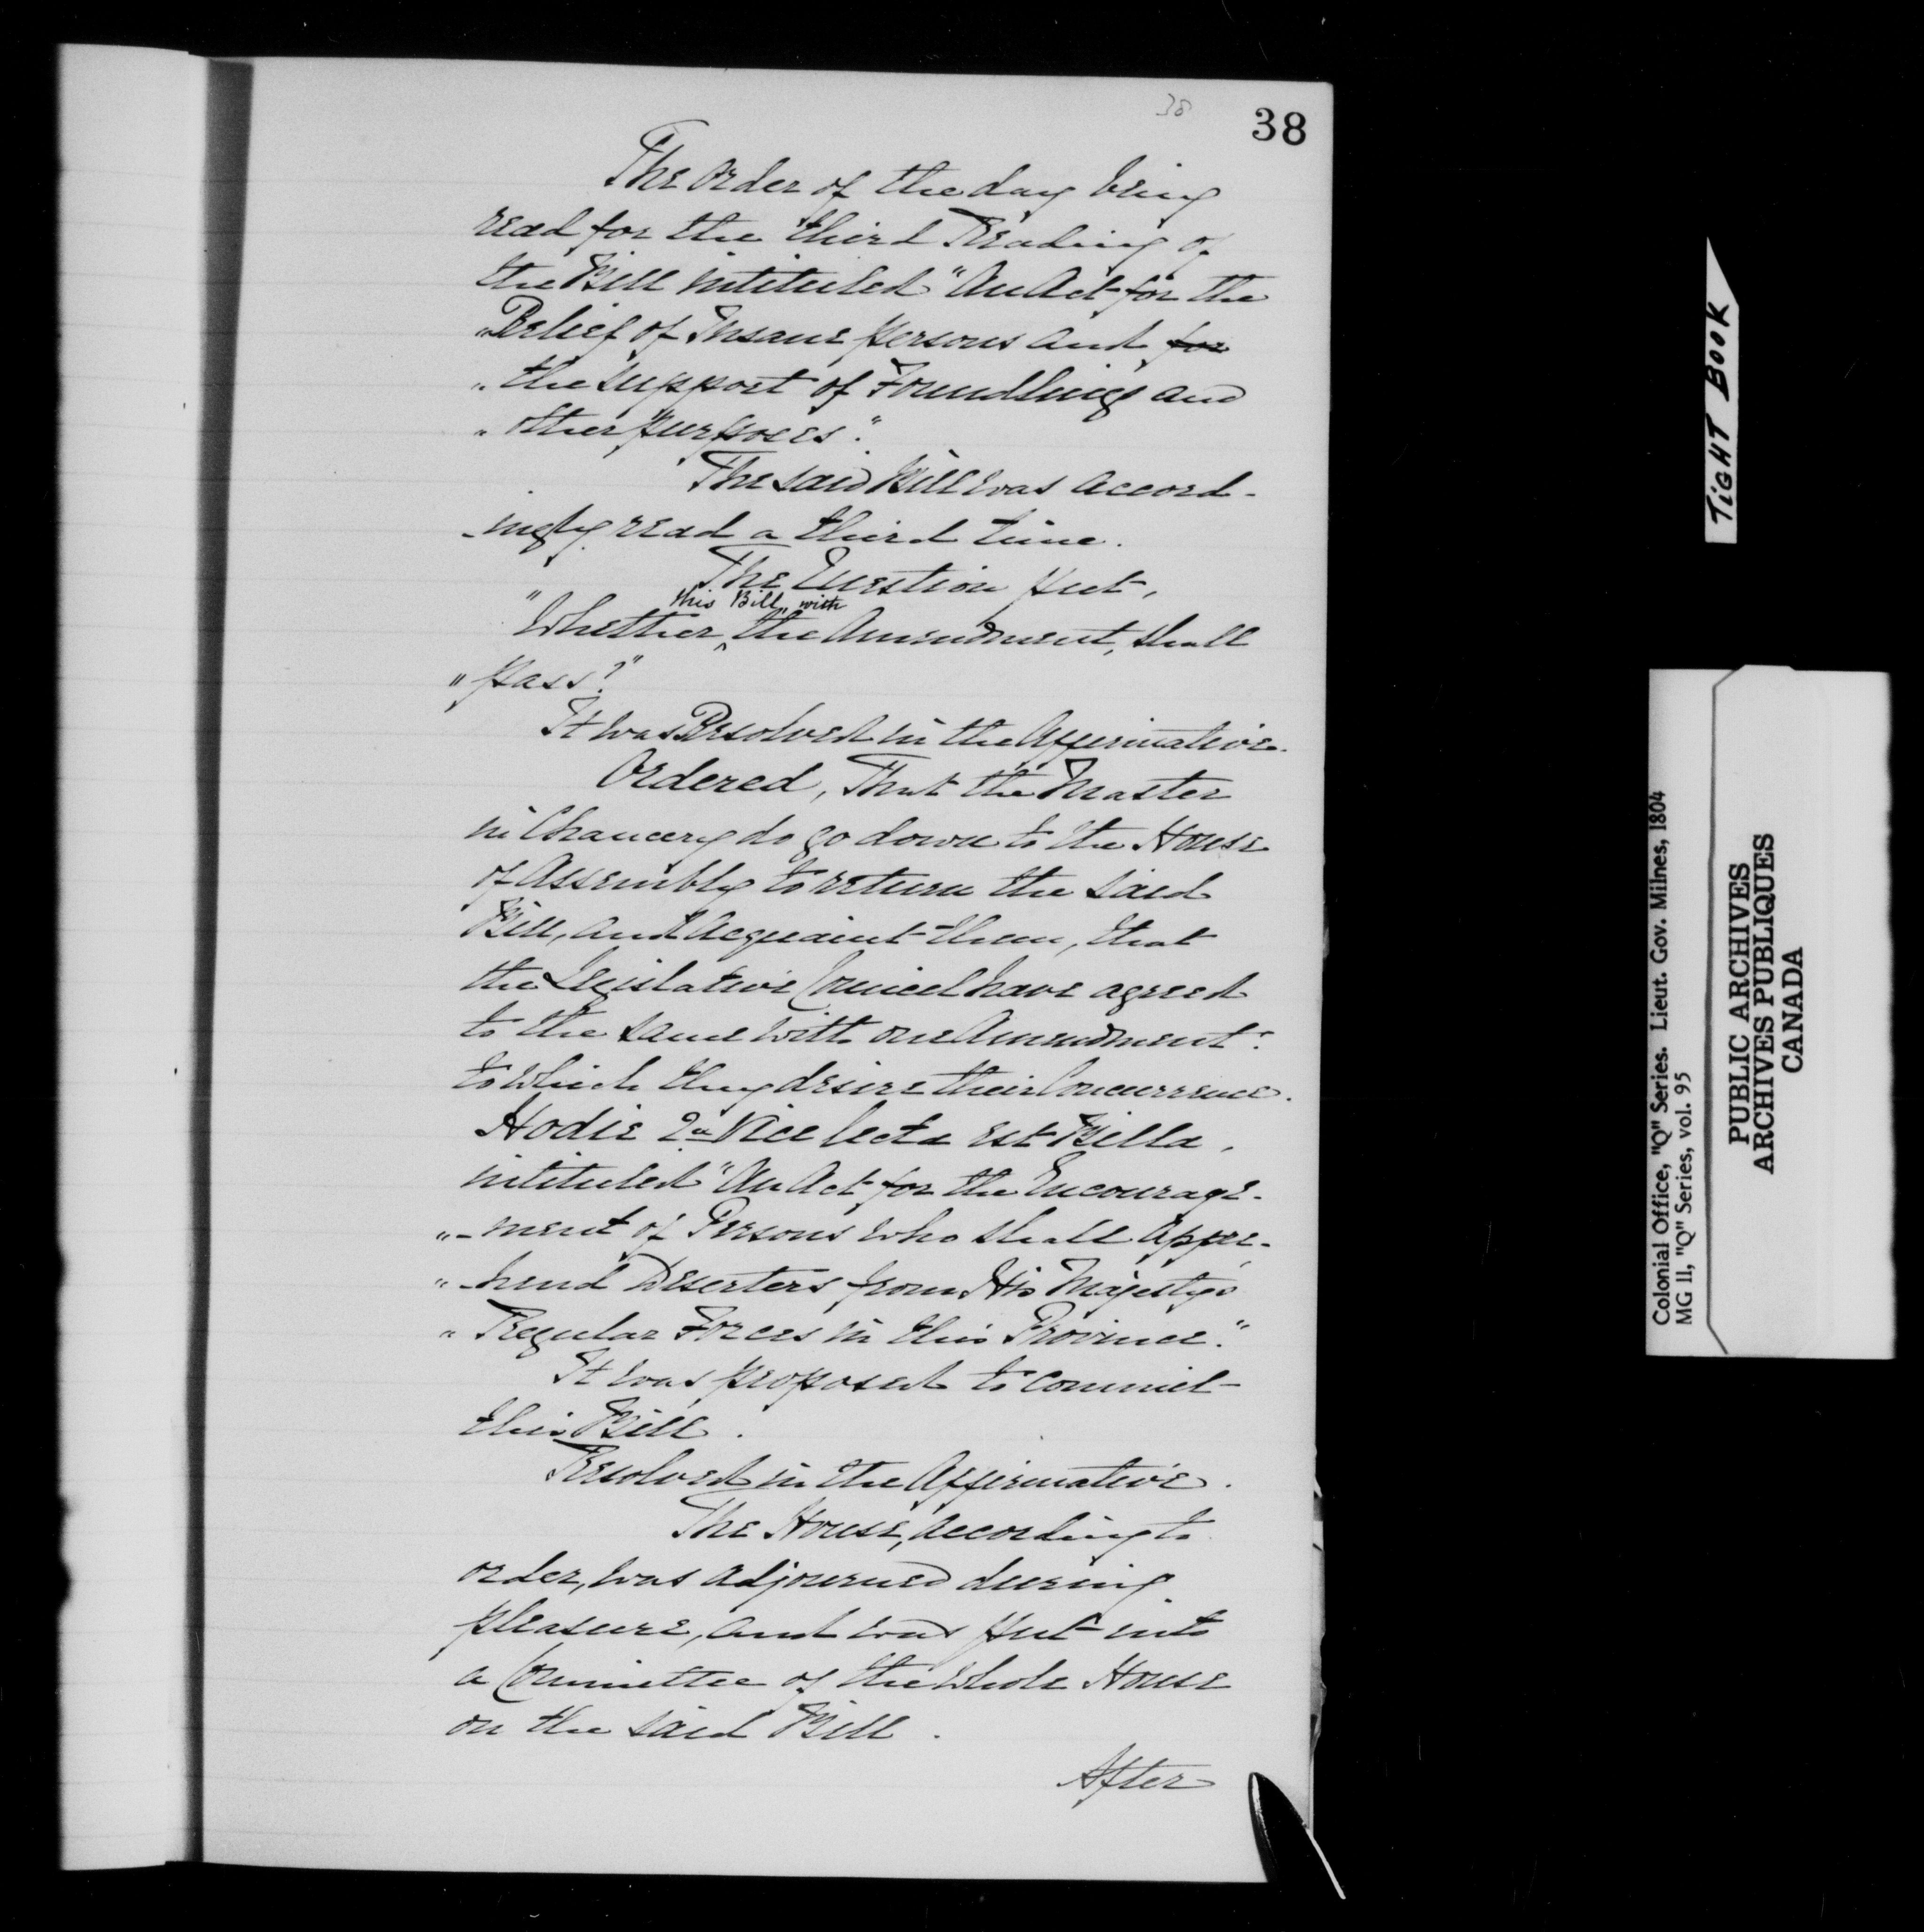 38
38
The Order of the day being
read for the third Reading of
the Bill intituled "An Act for the
"Relief of Insane persons and for
"the support of Foundlings and
"other purposes."
The said Bill was accord-
-ingly read a third time.
The Question put,
this Bill, with
"Whether ‸ the Amendment, shall
"pass?"
It was Resolved in the Affirmative.
Ordered, That the Master
in Chancery do go down to the House
of Assembly to return the said
Bill, and acquaint them, that
the Legislative Council have agreed
to the same with one Amendment:
to which they desire their Concurrence.
Hodie 2a Vice lecta est Billa,
intituled "An Act for the Encourage-
"-ment of Persons who shall appre-
"-hend Deserters from His Majesty's
"Regular Forces in this Province."
It was proposed to commit
this Bill.
Resolved in the Affirmative.
The House, according to
order, was adjourned during
pleasure, and was put into
a Committee of the whole House
on the said Bill.
After
TIGHT BOOK
Colonial Office, "Q" Series. Lieut. Gov. Milnes, 1804
MG 11, "Q" Series, vol. 95
PUBLIC ARCHIVES
ARCHIVES PUBLIQUES
CANADA